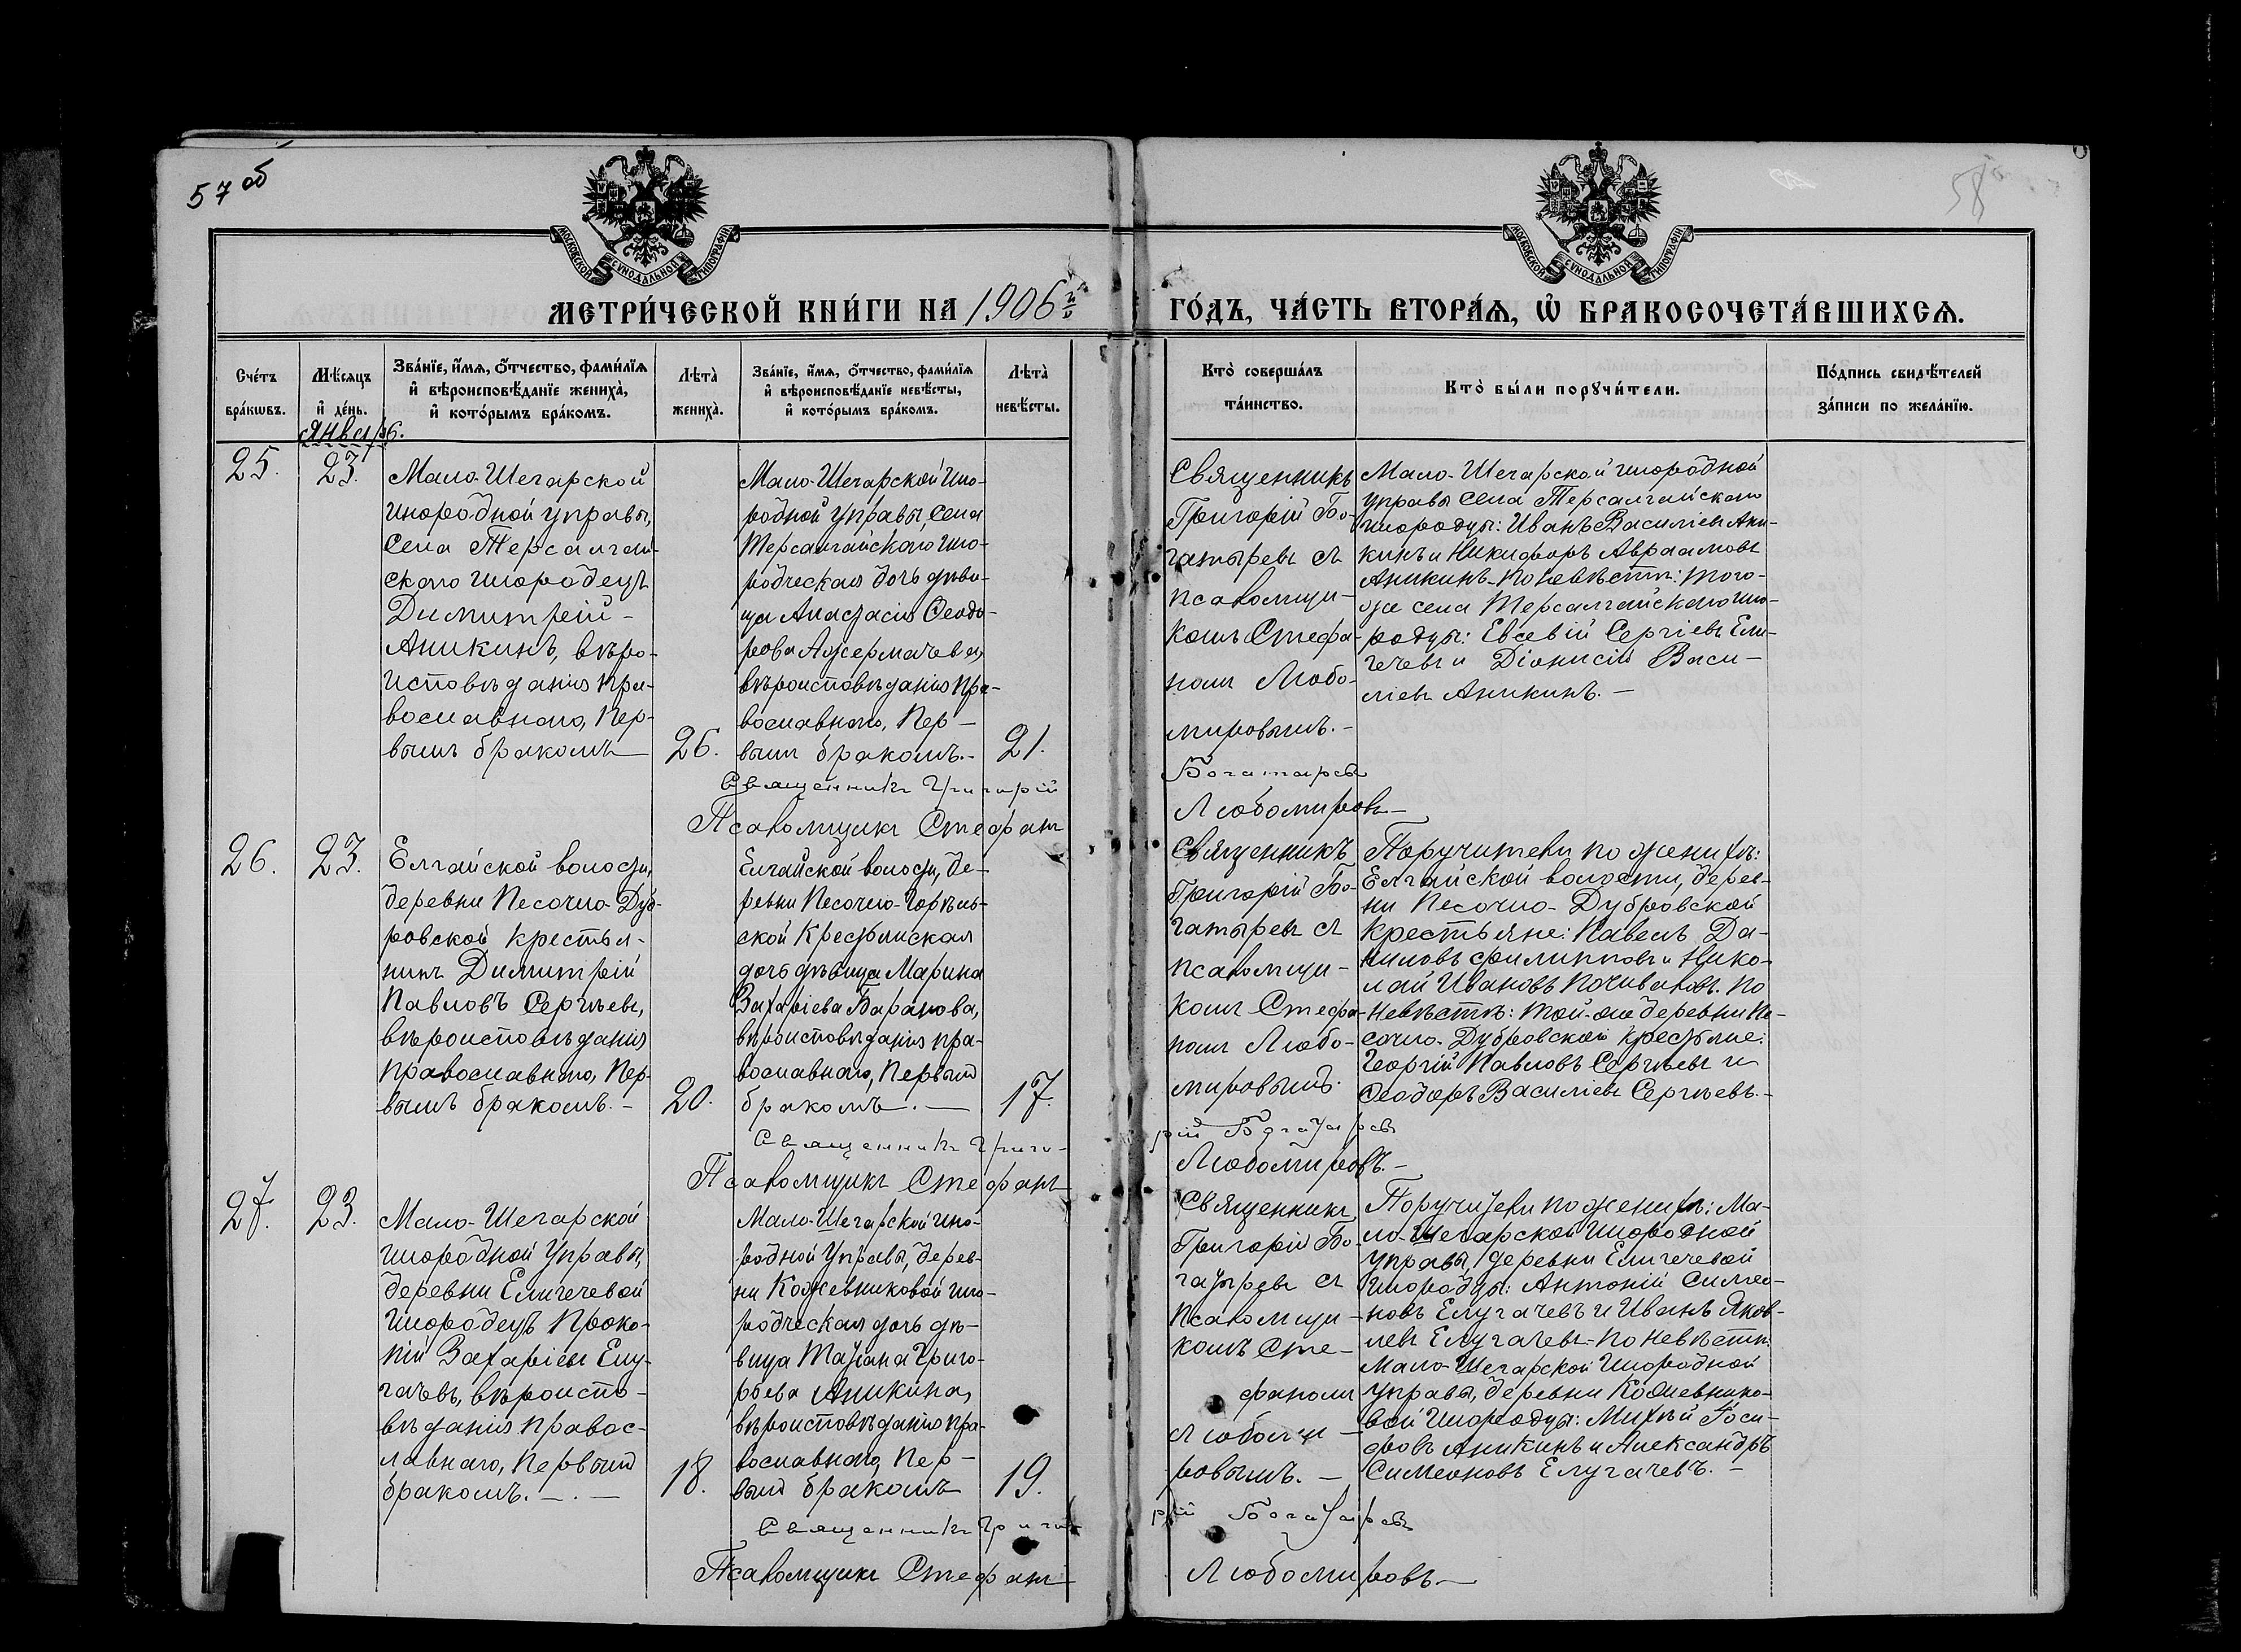 57 об
58
МОСКОВСКОЙ СУНОДАЛЬНОЙ ТИПОГРАФІИ
МОСКОВСКОЙ СУНОДАЛЬНОЙ ТИПОГРАФІИ
МЕТРИ́ЧЕСКОЙ КНИ́ГИ НА 1906й
ГО́ДЪ, ЧА́СТЬ ВТОРА́Ѧ, Ѽ БРАКОСОЧЕТА́ВШИХСѦ.
Счéтъ
брáкѡвъ.
Мѣ́сяцъ
и҆ дéнь.
Звáнїе, и҆́мѧ, ѻ҆́тчество, фамѝлїѧ
и҆ вѣроисповѣ́данїе женихà,
и҆ котóрымъ брáкомъ.
Лѣтà
женихà.
Звáнїе, и҆́мѧ, ѻ҆́тчество, фамѝлїѧ
и҆ вѣроисповѣ́данїе невѣ́сты,
и҆ котóрымъ брáкомъ.
Лѣтà
невѣ́сты.
Ктò совершáлъ
тáинство.
Ктò бы́ли порꙋчи́тели.
Пóдпись свидѣ́телей
зáписи по желáнїю.
Январь.
25.
23.
Мало-Шегарской
инородной управы,
села Терсалгай-
скаго инородецъ
Димитрій -
Аникинъ, вѣро-
исповѣданія пра-
вославнаго, пер-
вымъ бракомъ
26.
Мало-Шегарской ино-
родной управы, села
Терсалгайскаго ино-
родческая дочь дѣви-
ца Анастасія Ѳеодо-
рова Ажермачева,
вѣроисповѣданія пра-
вославнаго, пер-
вымъ бракомъ.-
21.
Священникъ
Григорій Бо-
гатыревъ съ
псаломщи-
комъ Стефа-
номъ Любо-
мировымъ.-
Мало-Шегарской инородной
управы села Терсалгайскаго
инородцы: Иванъ Василіевъ Ани-
кинъ и Никифоръ Авраамовъ
Аникинъ - по невѣстѣ: того-
же села Терсалгайскаго ино-
родцы: Евсевій Сергіевъ Ели-
гечевъ и Діонисій Васи-
ліевъ Аникинъ.-
Священникъ Григорій Богатыревъ
Псаломщикъ Стефанъ Любомировъ.-
26.
23.
Елгайской волости,
деревни Песочно-Дуб-
ровской крестья-
нинъ Димитрій
Павловъ Сергѣевъ,
вѣроисповѣданія
православнаго, пер-
вымъ бракомъ.-
20.
Елгайской волости, де-
ревни Песочно-Горѣль-
ской крестьянская
дочь дѣвица Марина
Захаріева Баранова,
вѣроисповѣданія пра-
вославнаго, первымъ
бракомъ.-
17.
Священникъ
Григорій Бо-
гатыревъ съ
псаломщи-
комъ Стефа-
номъ Любо-
мировымъ.
Поручители по женихѣ:
Елгайской волости, дерев-
ни Песочно-Дубровской
крестьяне: Павелъ Да-
ниловъ Филипповъ и Нико-
лай Ивановъ Почивановъ. по
невѣстѣ: той-же деревни Пе-
сочно-Дубровской крестьяне:
Георгій Павловъ Сергѣевъ и
Ѳеодоръ Василіевъ Сергѣевъ.-
Священникъ Григорій Богатыревъ
Псаломщикъ Стефанъ Любомировъ.-
27.
23.
Мало-Шегарской
инородной Управы,
деревни Елигечевой
инородецъ Проко-
пій Захаріевъ Елу-
гачевъ, вѣроиспо-
вѣданія правос-
лавнаго, первымъ
бракомъ.-.-
18.
Мало-Шегарской ино-
родной Управы, дерев-
ни Кожевниковой ино-
родческая дочь дѣ-
вица Татіана Григо-
рьева Аникина,
вѣроисповѣданія пра-
вославнаго, пер-
вымъ бракомъ
19.
Священникъ
Григорій Бо-
гатыревъ съ
псаломщи-
комъ Сте-
фаномъ
Любоми-
ровымъ.-
Поручители по женихѣ: Ма-
ло-Шегарской инородной
управы, деревни Елигечевой
инородцы: Антоній Симео-
новъ Елугачевъ и Иванъ Яков-
левъ Елугачевъ - по невѣстѣ:
Мало-Шегарской инородной
управы, деревни Кожевнико-
вой инородцы: Михѣй Іоси-
фовъ Аникинъ и Александръ
Симеоновъ Елугачевъ.-
Священникъ Григорій Богатыревъ
Псаломщикъ Стефанъ Любомировъ.-